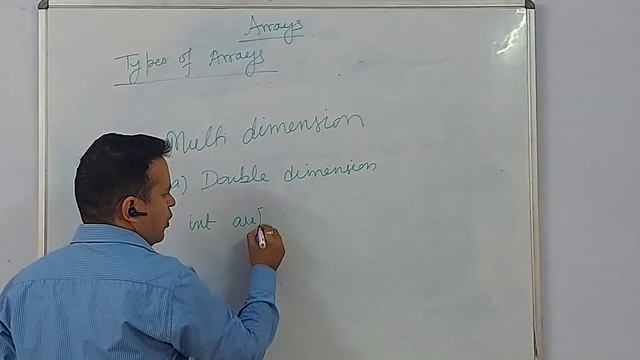 Arrays
Types of Arrays
Multi dimension
a) Double dimension
int arr[